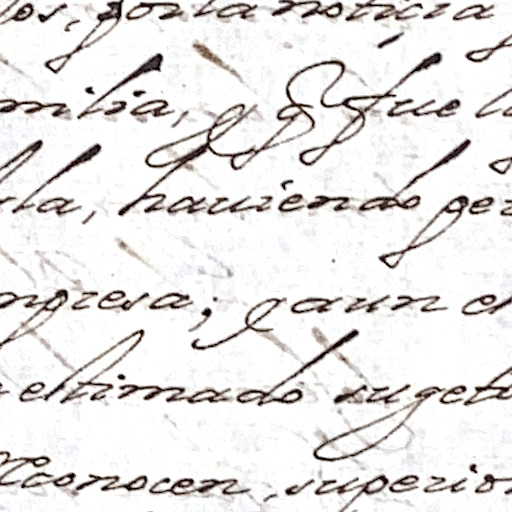 os, por la noticia
milia, y q fue l
la, haviendo per
mpresa; y aun el
estimado sugeto
Reconocen, superior